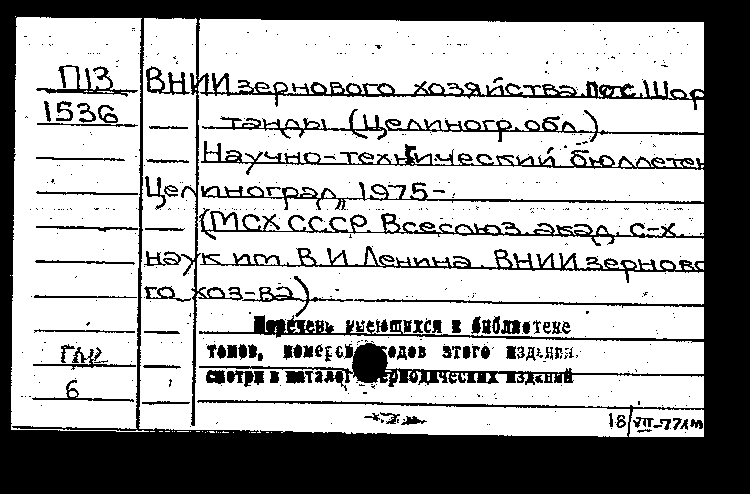 П13 ВНИИ зернового хозяйства. пос. Шор
1536 танды (Целиногр. обл.).
Научно-технический бюллетен
Целиноград, 1975-
(МСХ СССР. Всесоюз. акад. с-х.
наук им. В.И. Ленина. ВНИИ зерново
го хоз-ва).
Перечень имеющихся в библиотеке
томов, номеров годов этого издания
смотри в каталог периодических изданий
6
18/VII-77